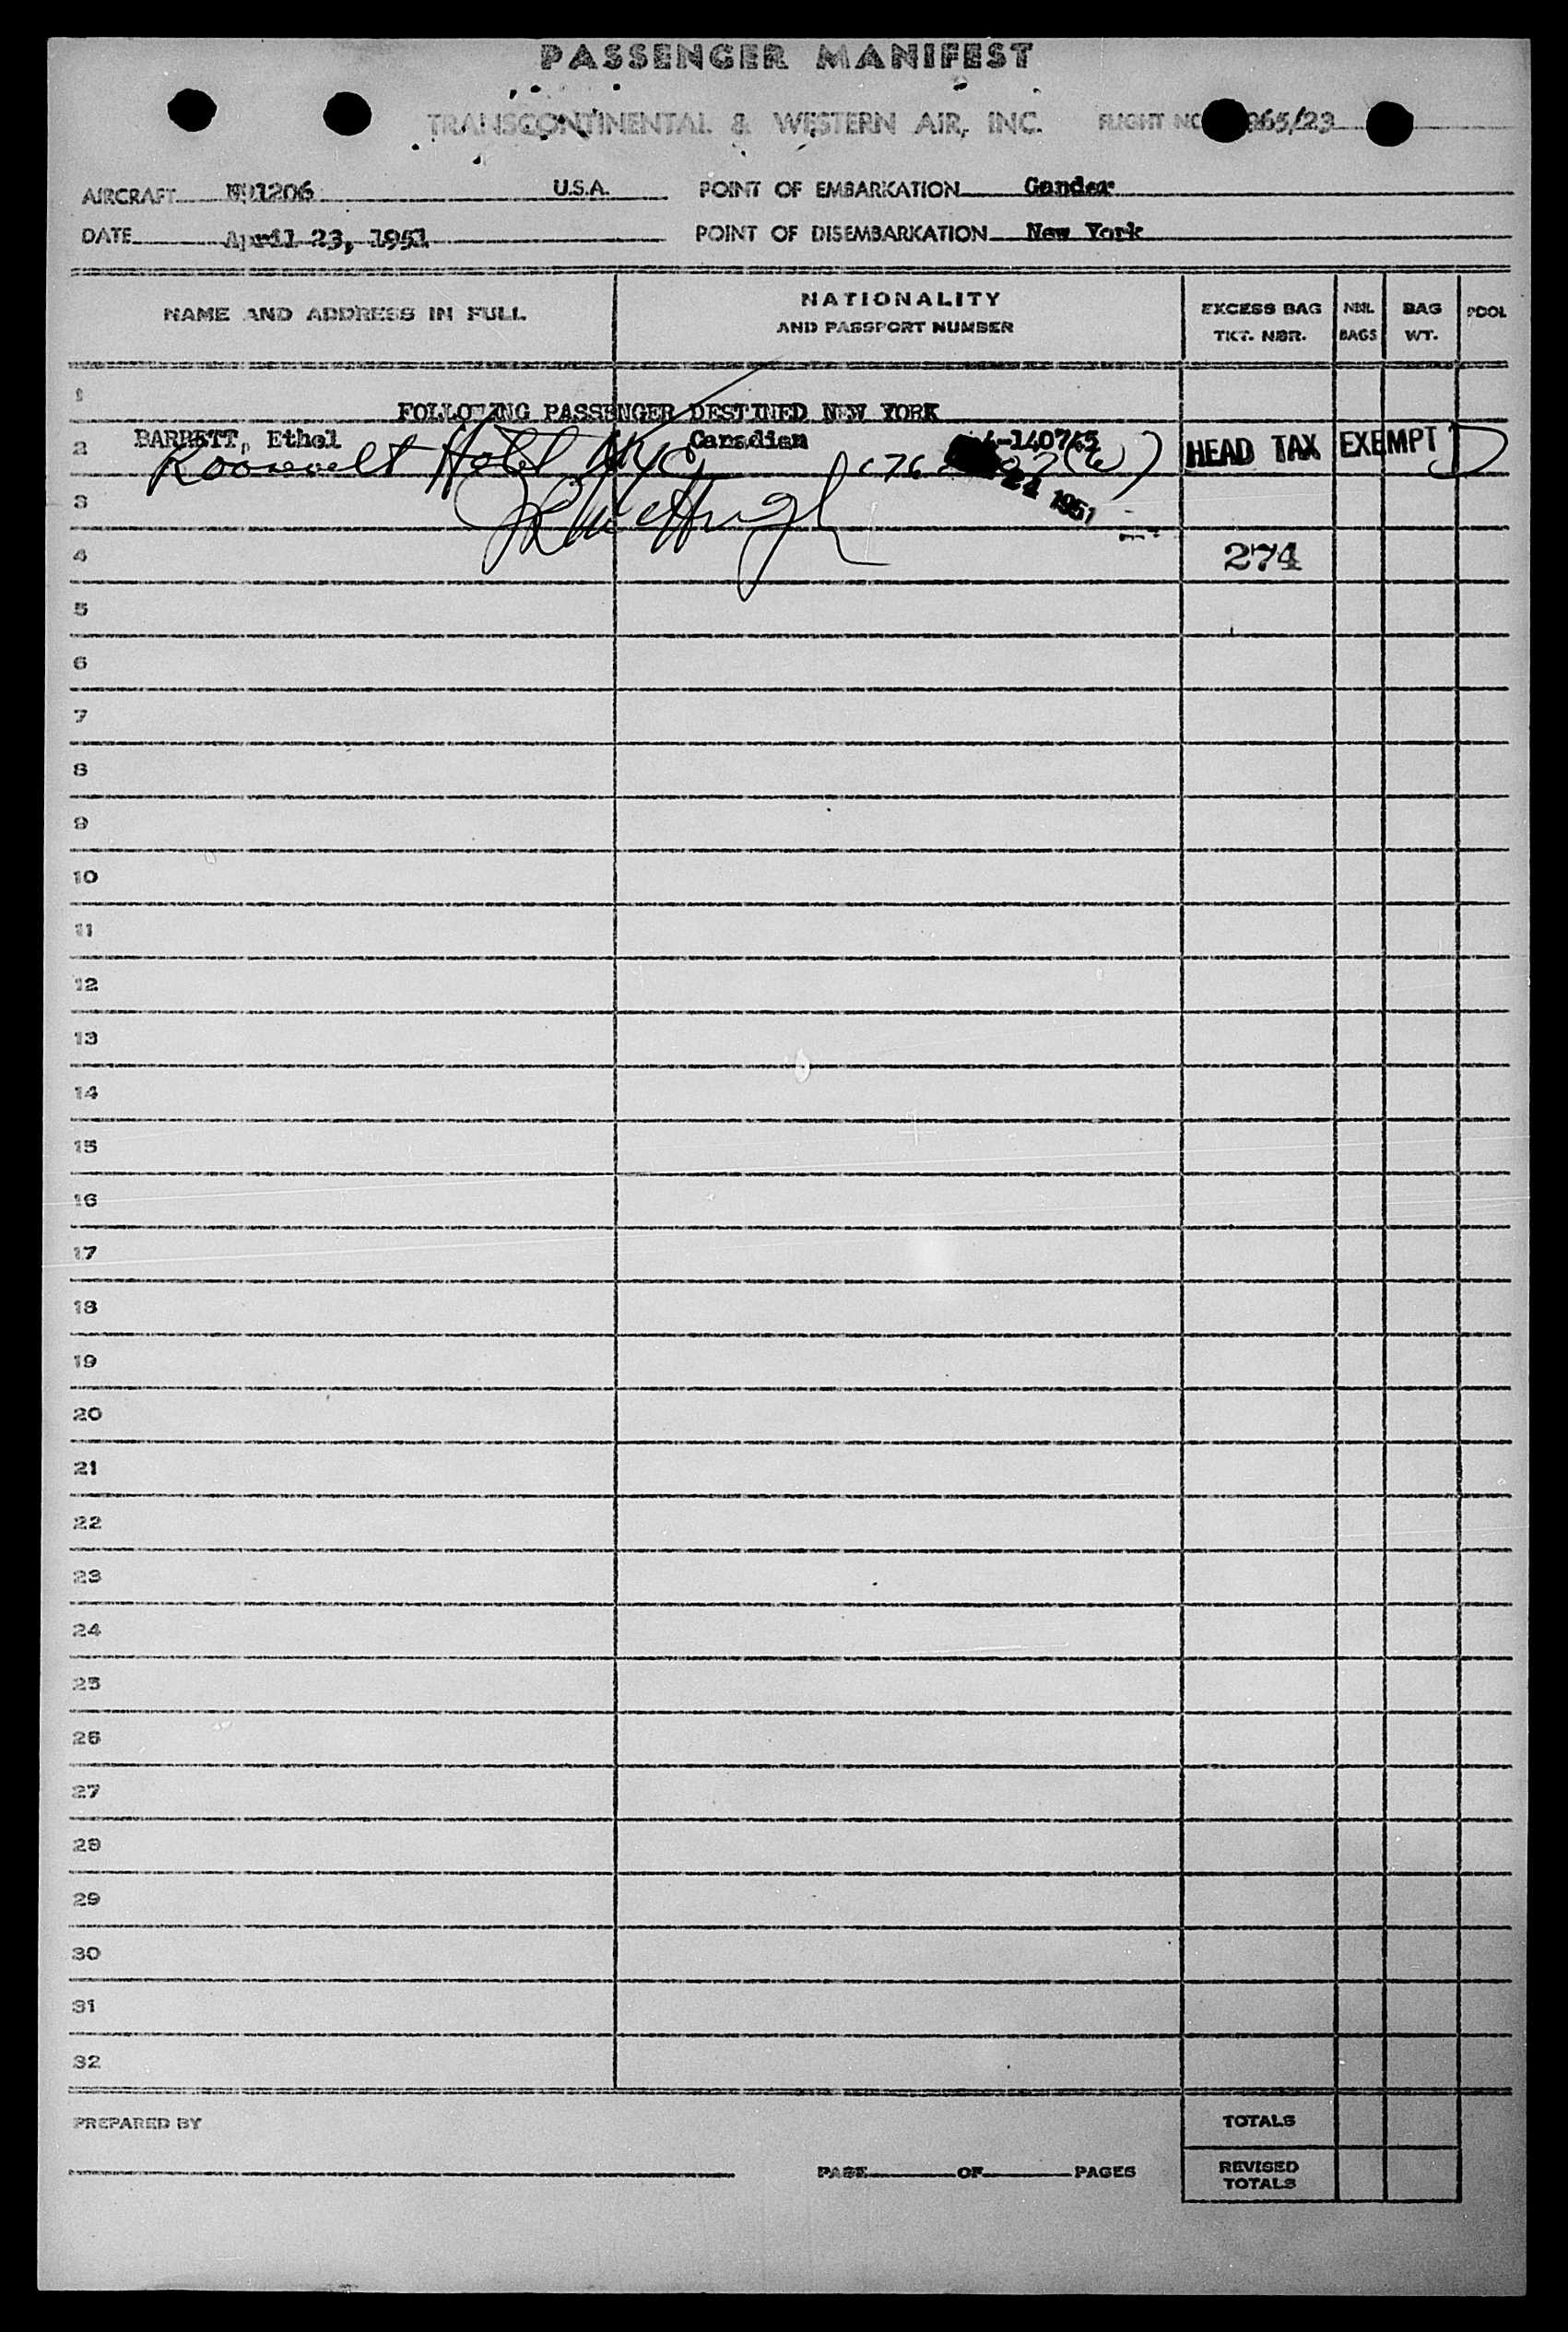 PASSENGER MANIFEST
TRANSCONTINENTAL & WESTERN AIR, INC. FLIGHT NO 965/23
AIRCRAFT N91206 U.S.A. POINT OF EMBARKATION Gander
DATE April 23, 1951 POINT OF DISEMBARKATION New York
NAME AND ADDRESS IN FULL
NATIONALITY
AND PASSPORT NUMBER
EXCESS BAG
TKT. NBR.
NBR.
BAGS
BAG
WT.
POOL
1
FOLLOWING PASSENGER DESTINED NEW YORK
2 BARRETT, Ethel Canadian 4-140745
Roosevelt Hotel NYC
HEAD TAX EXEMPT
24 1951
3
4 274
5
6
7
8
9
10
11
12
13
14
15
16
17
18
19
20
21
22
23
24
25
26
27
28
29
30
31
32
PREPARED BY
TOTALS
PAGE OF PAGES
REVISED
TOTALS